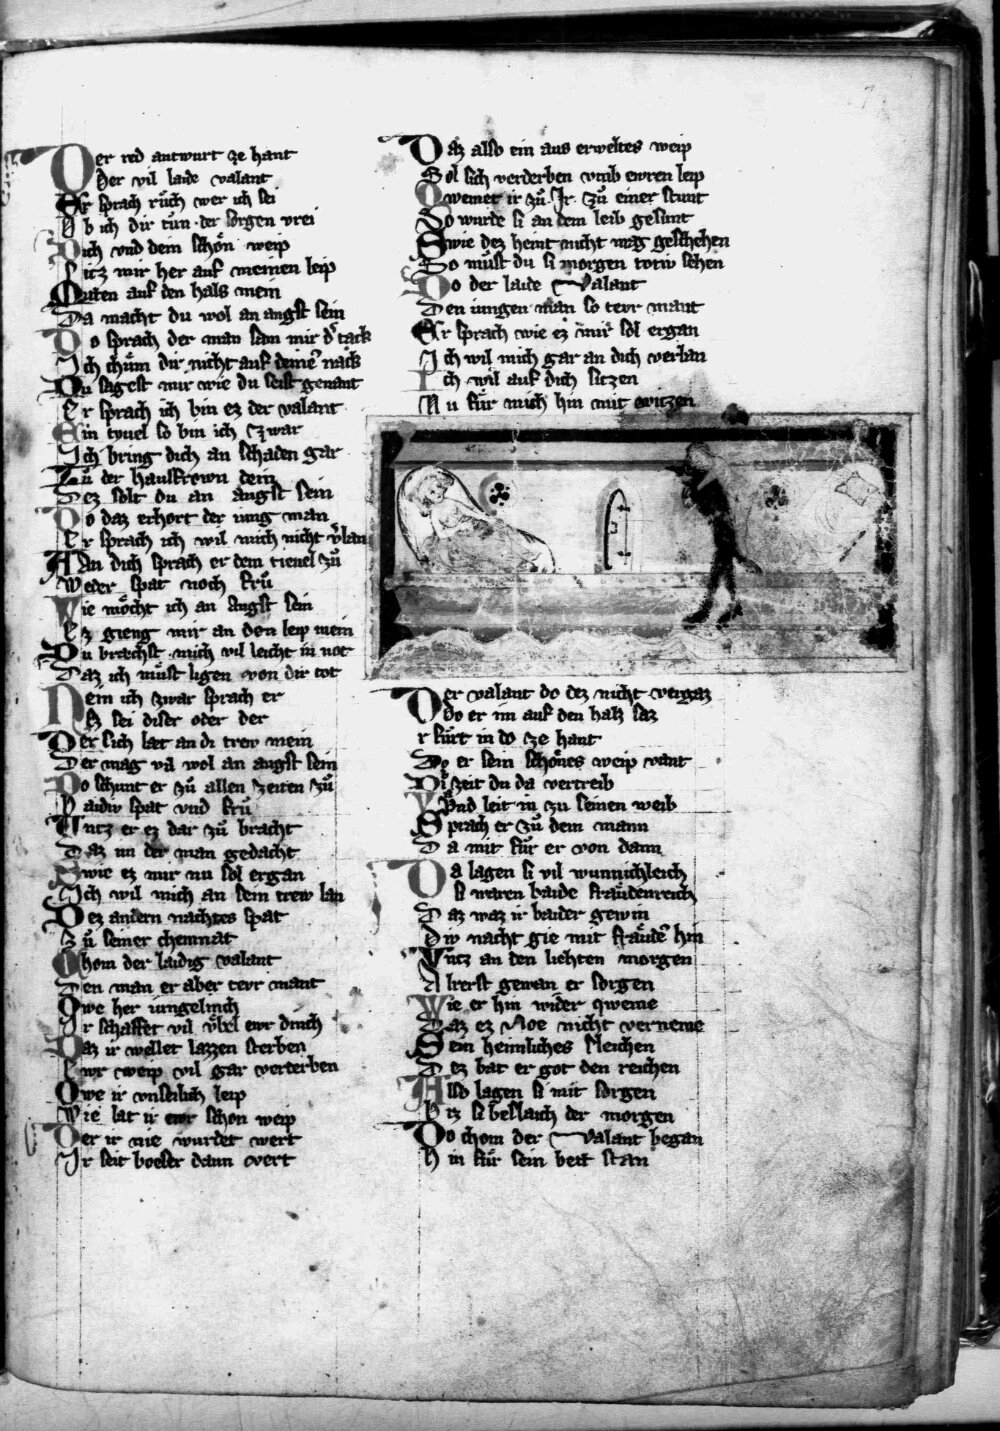 Der red antwurt ze hant
Der vil laide valant
Er sprach ruͦch wer ich sei
Ab ich dir tuͤn der sorgen vrei
Dich vnd dein schoͤn weip
Sitz mir her auf meinen leip
Outen auf den hals mein
Da macht du wol an angst sein
Do sprach der man sam mir d' tack
Ich chuͤm dir nicht auf deinē nack
Du sagest mir wie du seist genant
Er sprach ich bin ez der valant
Ein tyuel so bin ich zwar
Ich bring dich an schaden gar
Zuͦ der hausfrown dein
Dez solt du an angst sein
Do daz erhort der iung man
Er sprach ich wil mich nicht v'lan
An dich sprach er dem tieuel zuͦ
Weder spat noch fruͦ
Wie moͤcht ich an angst sein
Ez gieng mir an den leip mein
Du bræchst mich vil leicht in not
Daz ich muͤst ligen von dir tot
Nein ich zwar sprach er
Ez sei diser oder der
Der sich læt an di trew mein
Der mag vā wol an angst sein
Do schunt er zuͦ allen zeiten zuͦ
Baidiv spat vnd fruͦ
Vntz er ez dar zuͦ bracht
Daz im der man gedacht
Swie ez mir nu sol ergan
Ich wil mich an sein trew lan
Dez andern nachtes spat
Zuͦ seiner chemnat
Chom der laidig valant
Den man er aber tevr mant
Owe her iungelinch
Ir schaffet vil vͤbel ewr dinch
Daz ir wellet lazzen sterben
Ewr weip vil gar verterben
Owe ir vnseilich leip
Wie lat ir ewr schon weip
Der ir nie wurdet wert
Ir seit boeser dann vert
Daz also ein aus erweltes weip
Sol sich verderben vmb ewren leip
Qwemet ir zuͦ Ir zuͦ einer stunt
So wurde si an dem leib gesunt
Swie dez heint nicht mag geschehen
So muͤst du si morgen totiv sehen
Do der laide valant
Den iungen man so tevr mant
Er sprach wie ez mir sol ergan
Ich wil mich gar an dich verlan
Ich wil auf dich sitzen
Nu fuͤr mich hin mit witzen
Der valant do dez nicht vergaz
Do er im auf den hals saz
r fuͤrt in do ze hant
Do er sein schoͤnes weip vant
Di zeit du da vertreib
Vnd leit in zu seinen weib
Sprach er zuͦ dem mann
Da mit fuͤr er von dann
Da lagen si vil wunnichleich
si waren baide fraͤudenreich
Daz waz ir baider gewin
Div nacht gie mit fraͤudē hin
Vntz an den lichten morgen
Alrerst gewan er sorgen
Wie er hin wider qweme
Daz ez Noe nicht verneme
Sein heimliches sleichen
Dez bat er got den reichen
Also lagen si mit sorgen
Biz si beslaich der morgen
Do chom der valant began
Hin fuͤr sein bett stan